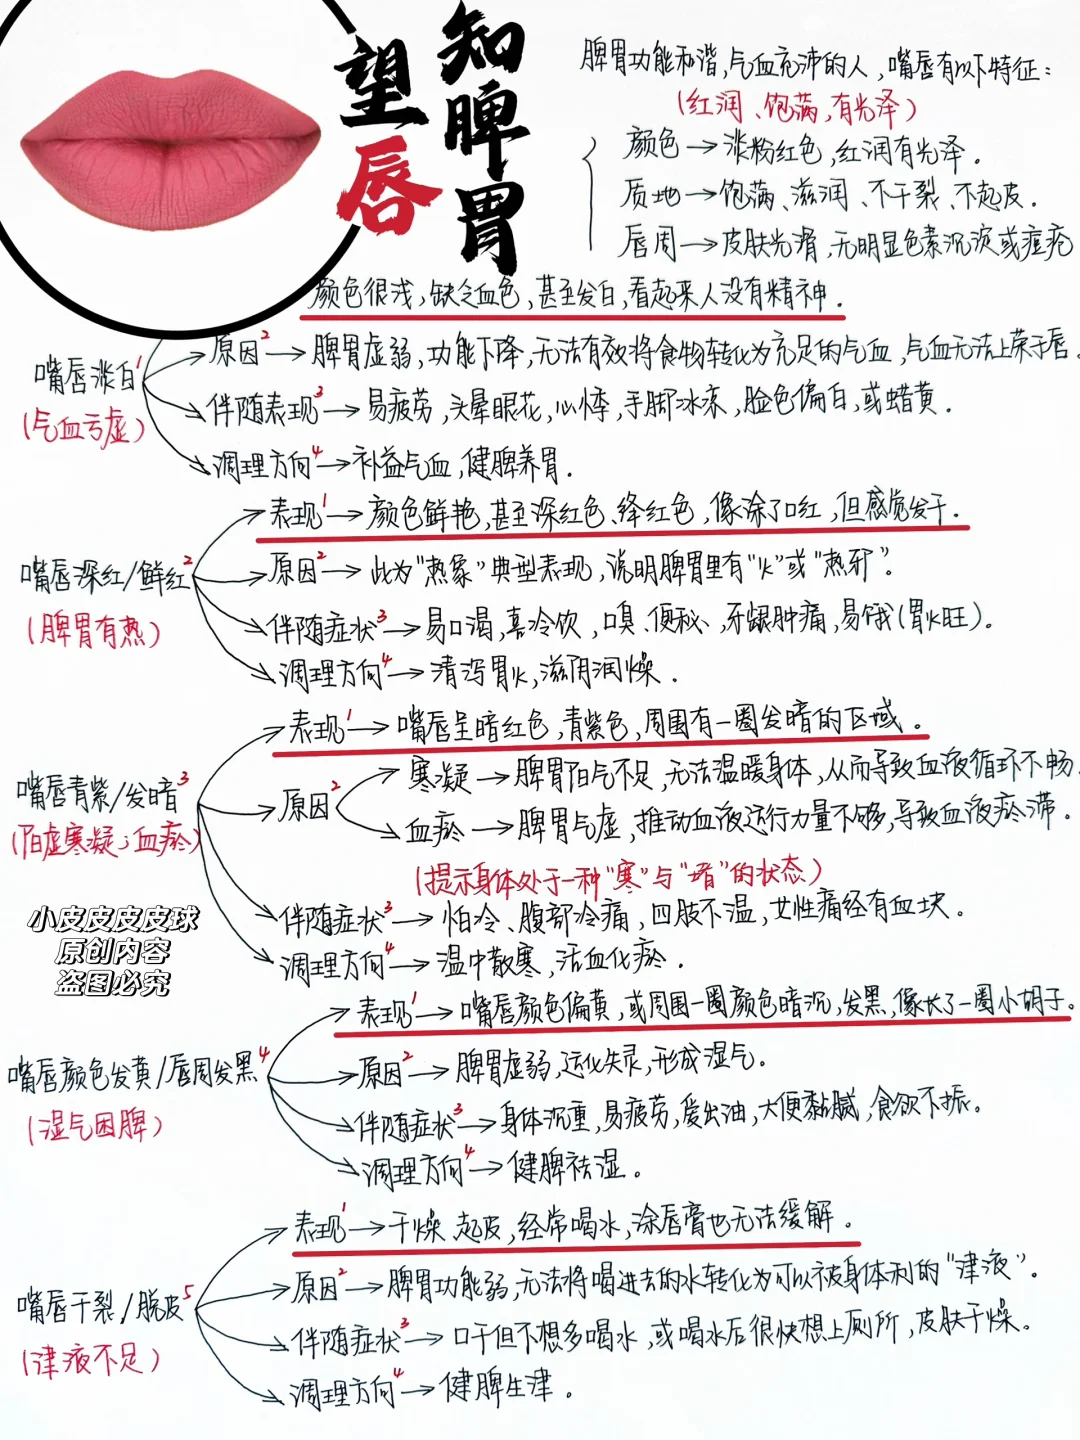 望唇
知脾胃
脾胃功能和谐,气血充沛的人,嘴唇有以下特征:
(红润、饱满,有光泽)
颜色→淡粉红色,红润有光泽.
质地→饱满、滋润、不干裂、不起皮.
唇周→皮肤光滑,无明显色素沉淀或痘疤
颜色很浅,缺乏血色,甚至发白,看起来人没有精神.
嘴唇淡白1
(气血亏虚)
原因2→脾胃虚弱,功能下降,无法有效将食物转化为充足的气血,气血无法上荣于唇.
伴随表现3→易疲劳,头晕眼花,心悸,手脚冰凉,脸色偏白,或蜡黄.
调理方向4→补益气血,健脾养胃.
嘴唇深红/鲜红2
(脾胃有热)
表现1→颜色鲜艳,甚至深红色、绛红色,像涂了口红,但感觉发干.
原因2→此为“热象”典型表现,说明脾胃里有“火”或“热邪”.
伴随症状3→易口渴,喜冷饮,口臭、便秘、牙龈肿痛,易饿(胃火旺).
调理方向4→清泻胃火,滋阴润燥.
嘴唇青紫/发暗3
(阳虚寒凝;血瘀)
表现1→嘴唇呈暗红色,青紫色,周围有一圈发暗的区域.
原因2
寒凝→脾胃阳气不足,无法温暖身体,从而导致血液循环不畅.
血瘀→脾胃气虚,推动血液运行力量不够,导致血液瘀滞.
(提示身体处于一种“寒”与“堵”的状态)
伴随症状3→怕冷、腹部冷痛,四肢不温,女性痛经有血块.
调理方向4→温中散寒,活血化瘀.
小皮皮皮皮球
原创内容
盗图必究
嘴唇颜色发黄/唇周发黑4
(湿气困脾)
表现1→嘴唇颜色偏黄,或周围一圈颜色暗沉,发黑,像长了一圈小胡子.
原因2→脾胃虚弱,运化失灵,形成湿气.
伴随症状3→身体沉重,易疲劳,爱出油,大便黏腻,食欲不振.
调理方向4→健脾祛湿.
嘴唇干裂/脱皮5
(津液不足)
表现1→干燥、起皮,经常喝水,涂唇膏也无法缓解.
原因2→脾胃功能弱,无法将喝进去的水转化为可以被身体利的“津液”.
伴随症状3→口干但不想多喝水,或喝水后很快想上厕所,皮肤干燥.
调理方向4→健脾生津.